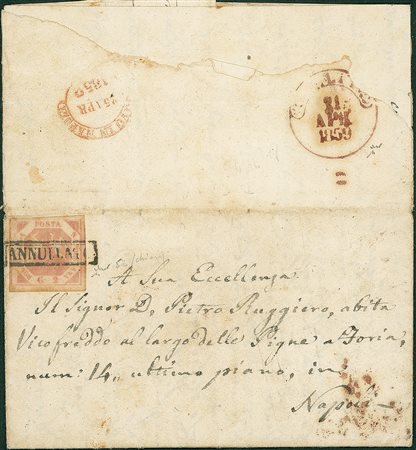 25 APR
1859
APR
1859
POSTA
G 2
ANNULLATO
A Sua Eccellenza
Il Signor D. Pietro Ruggiero, abita
Vicofreddo al largo delle Pigne a Foria,
num: 14,, ultimo piano, in
Napoli